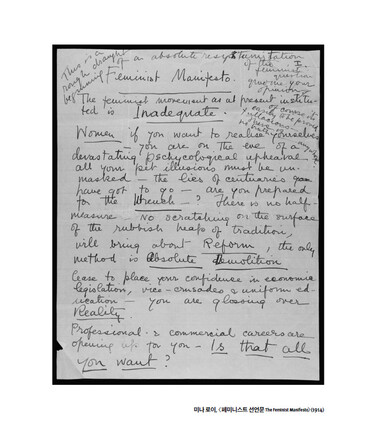 This is a
rough draught
beginning of a absolute resystemitation
of the
feminist
question
give me your
opinion
Feminist Manifesto.
The feminist movement as at present institu-
ted is Inadequate.
Women if you want to realise yourselves
- you are on the eve of a
devastating psychological upheaval -
all your pet illusions must be un-
masked - the lies of centuries
have got to go - are you prepared
for the Wrench - ? There is no half-
measure - no scratching on the surface
of the rubbish heap of tradition,
will bring about Reform, the only
method is Absolute Demolition
Cease to place your confidence in economic
legislation, vice-crusades & uniform ed-
ucation - you are glossing over
Reality.
Professional & commercial careers are
opening up for you - Is that all
you want?
미나 로이, 《페미니스트 선언문 The Feminist Manifesto》 (1914)